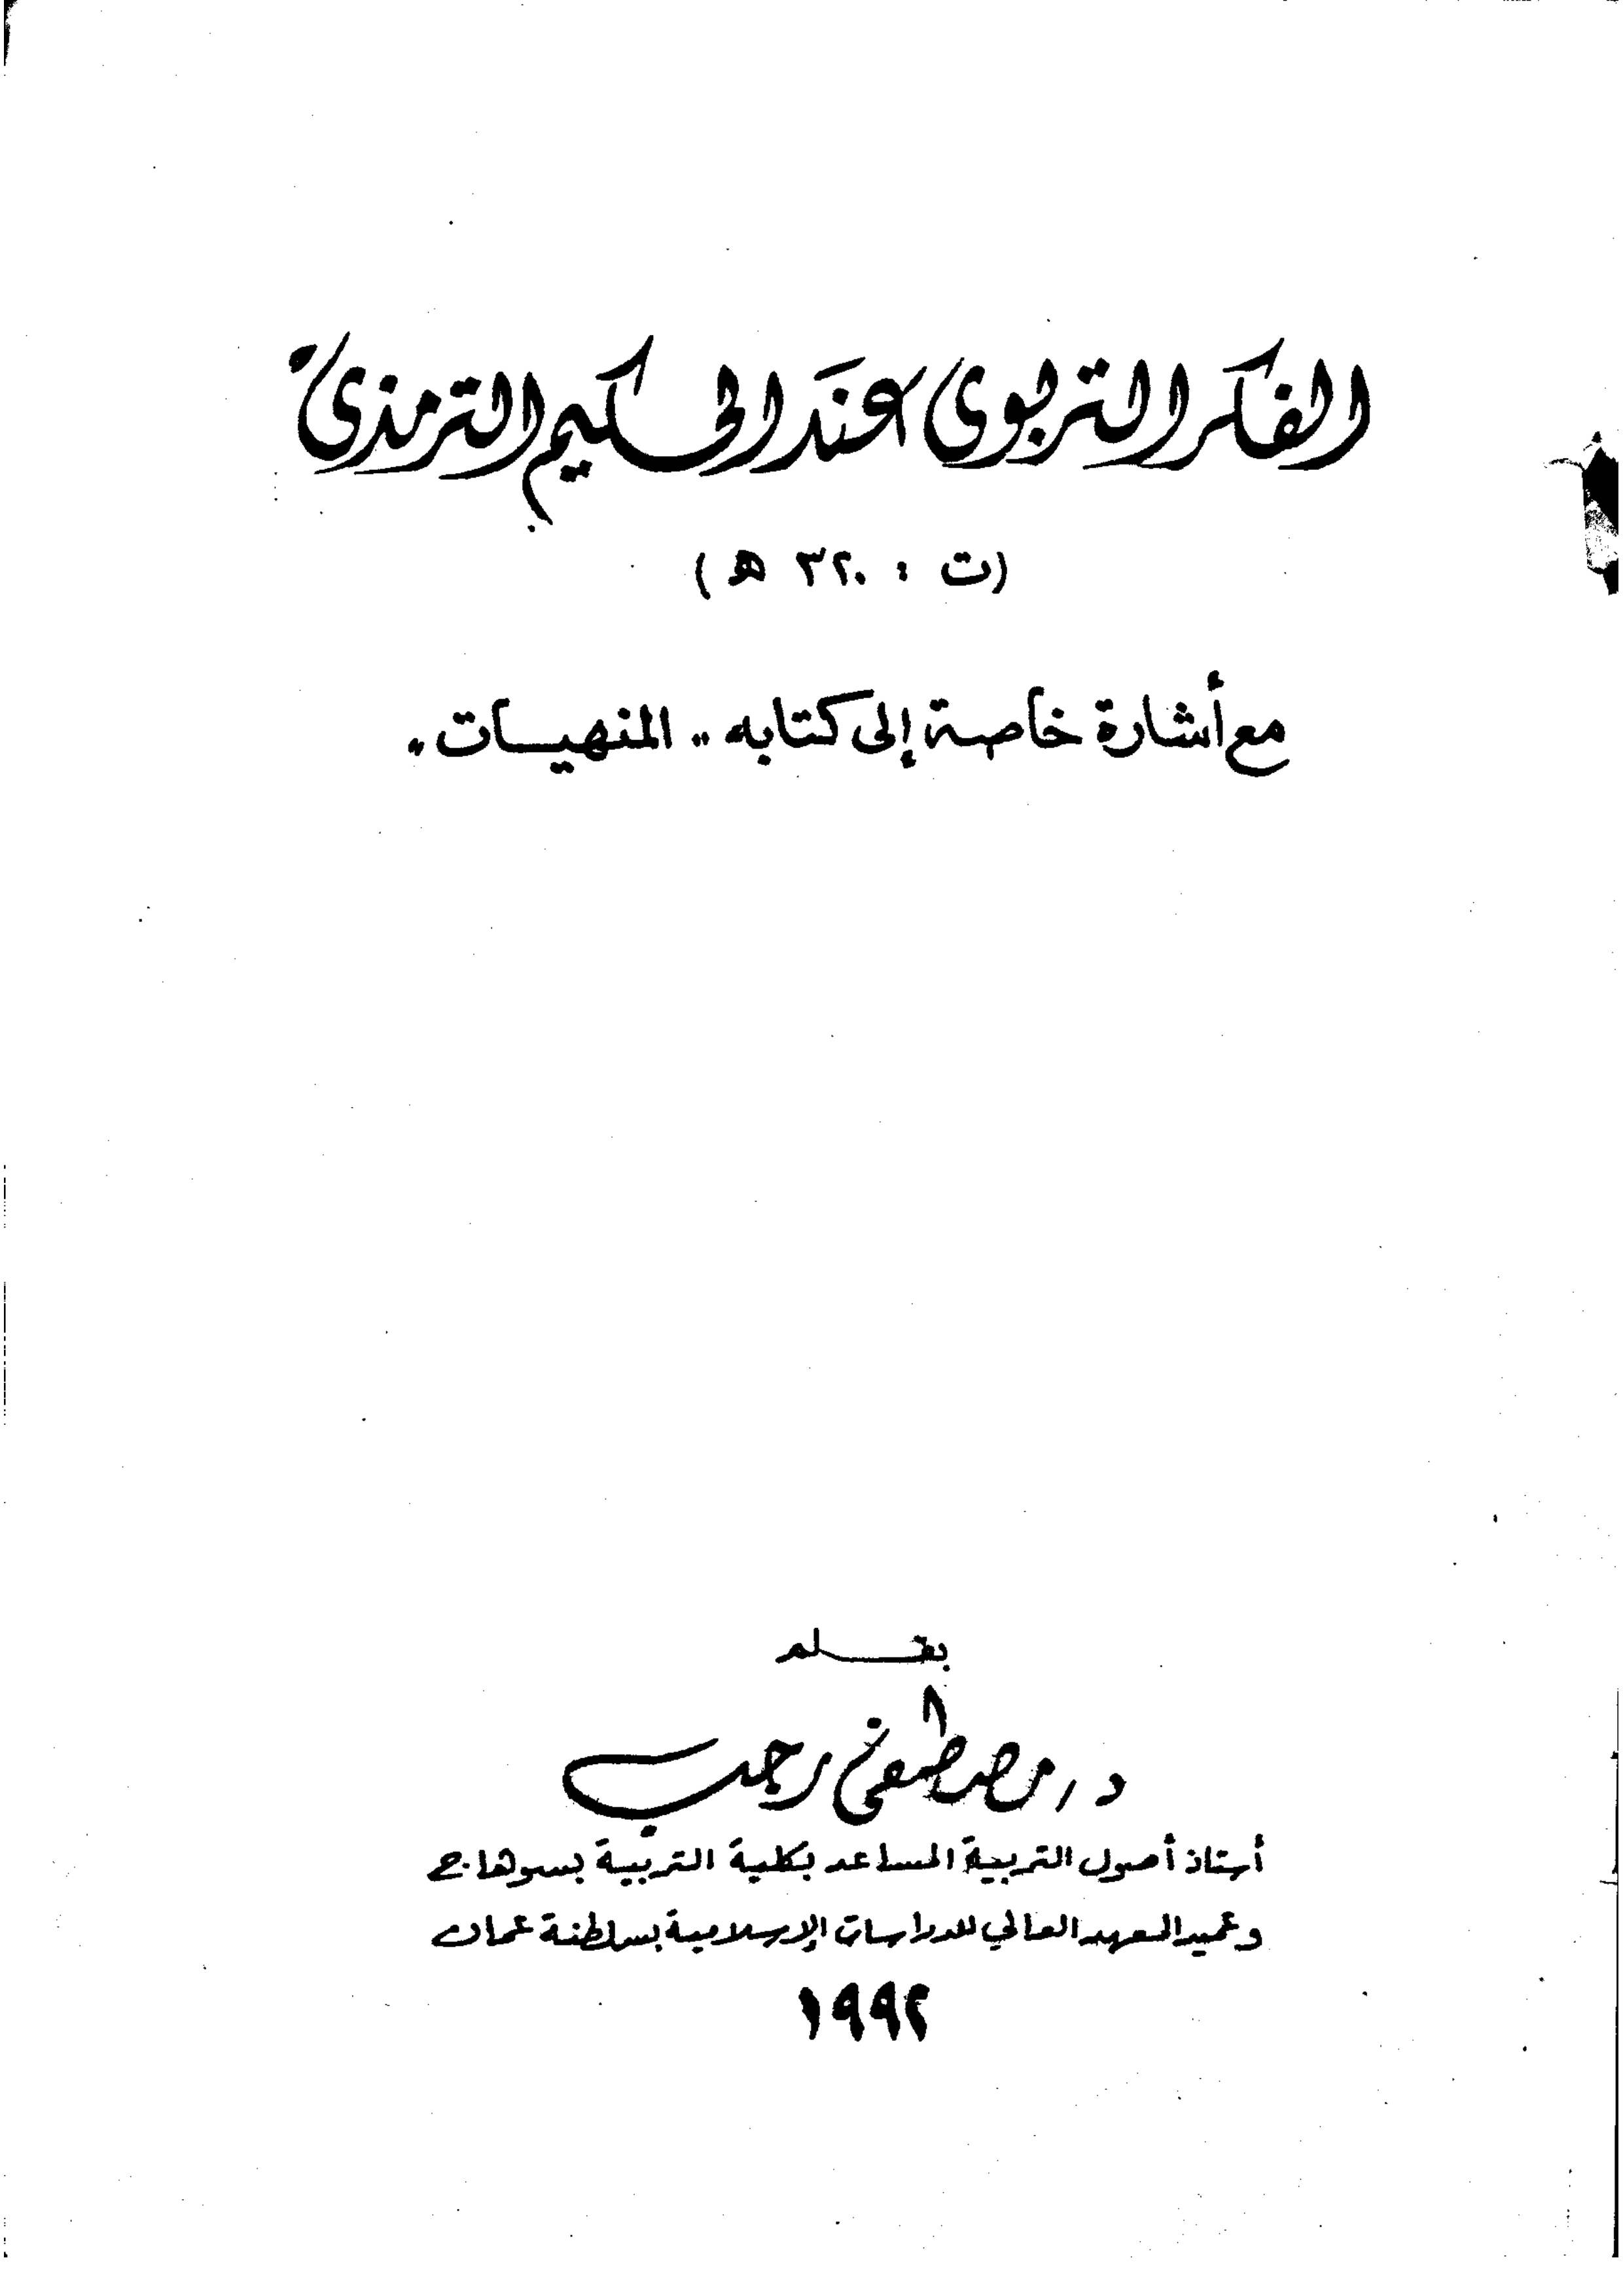 الفكر التربوى عند الحكيم الترمذى
(ت : ٣٢٠ هـ)
مع أشارة خاصة إلى كتابه " المنهيات "
بقلم
د / مصطفى رجب
أستاذ أصول التربية المساعد بكلية التربية بسوهاج
وعميد المعهد العالي للدراسات الإسلامية بسلطنة عمان
١٩٩٢